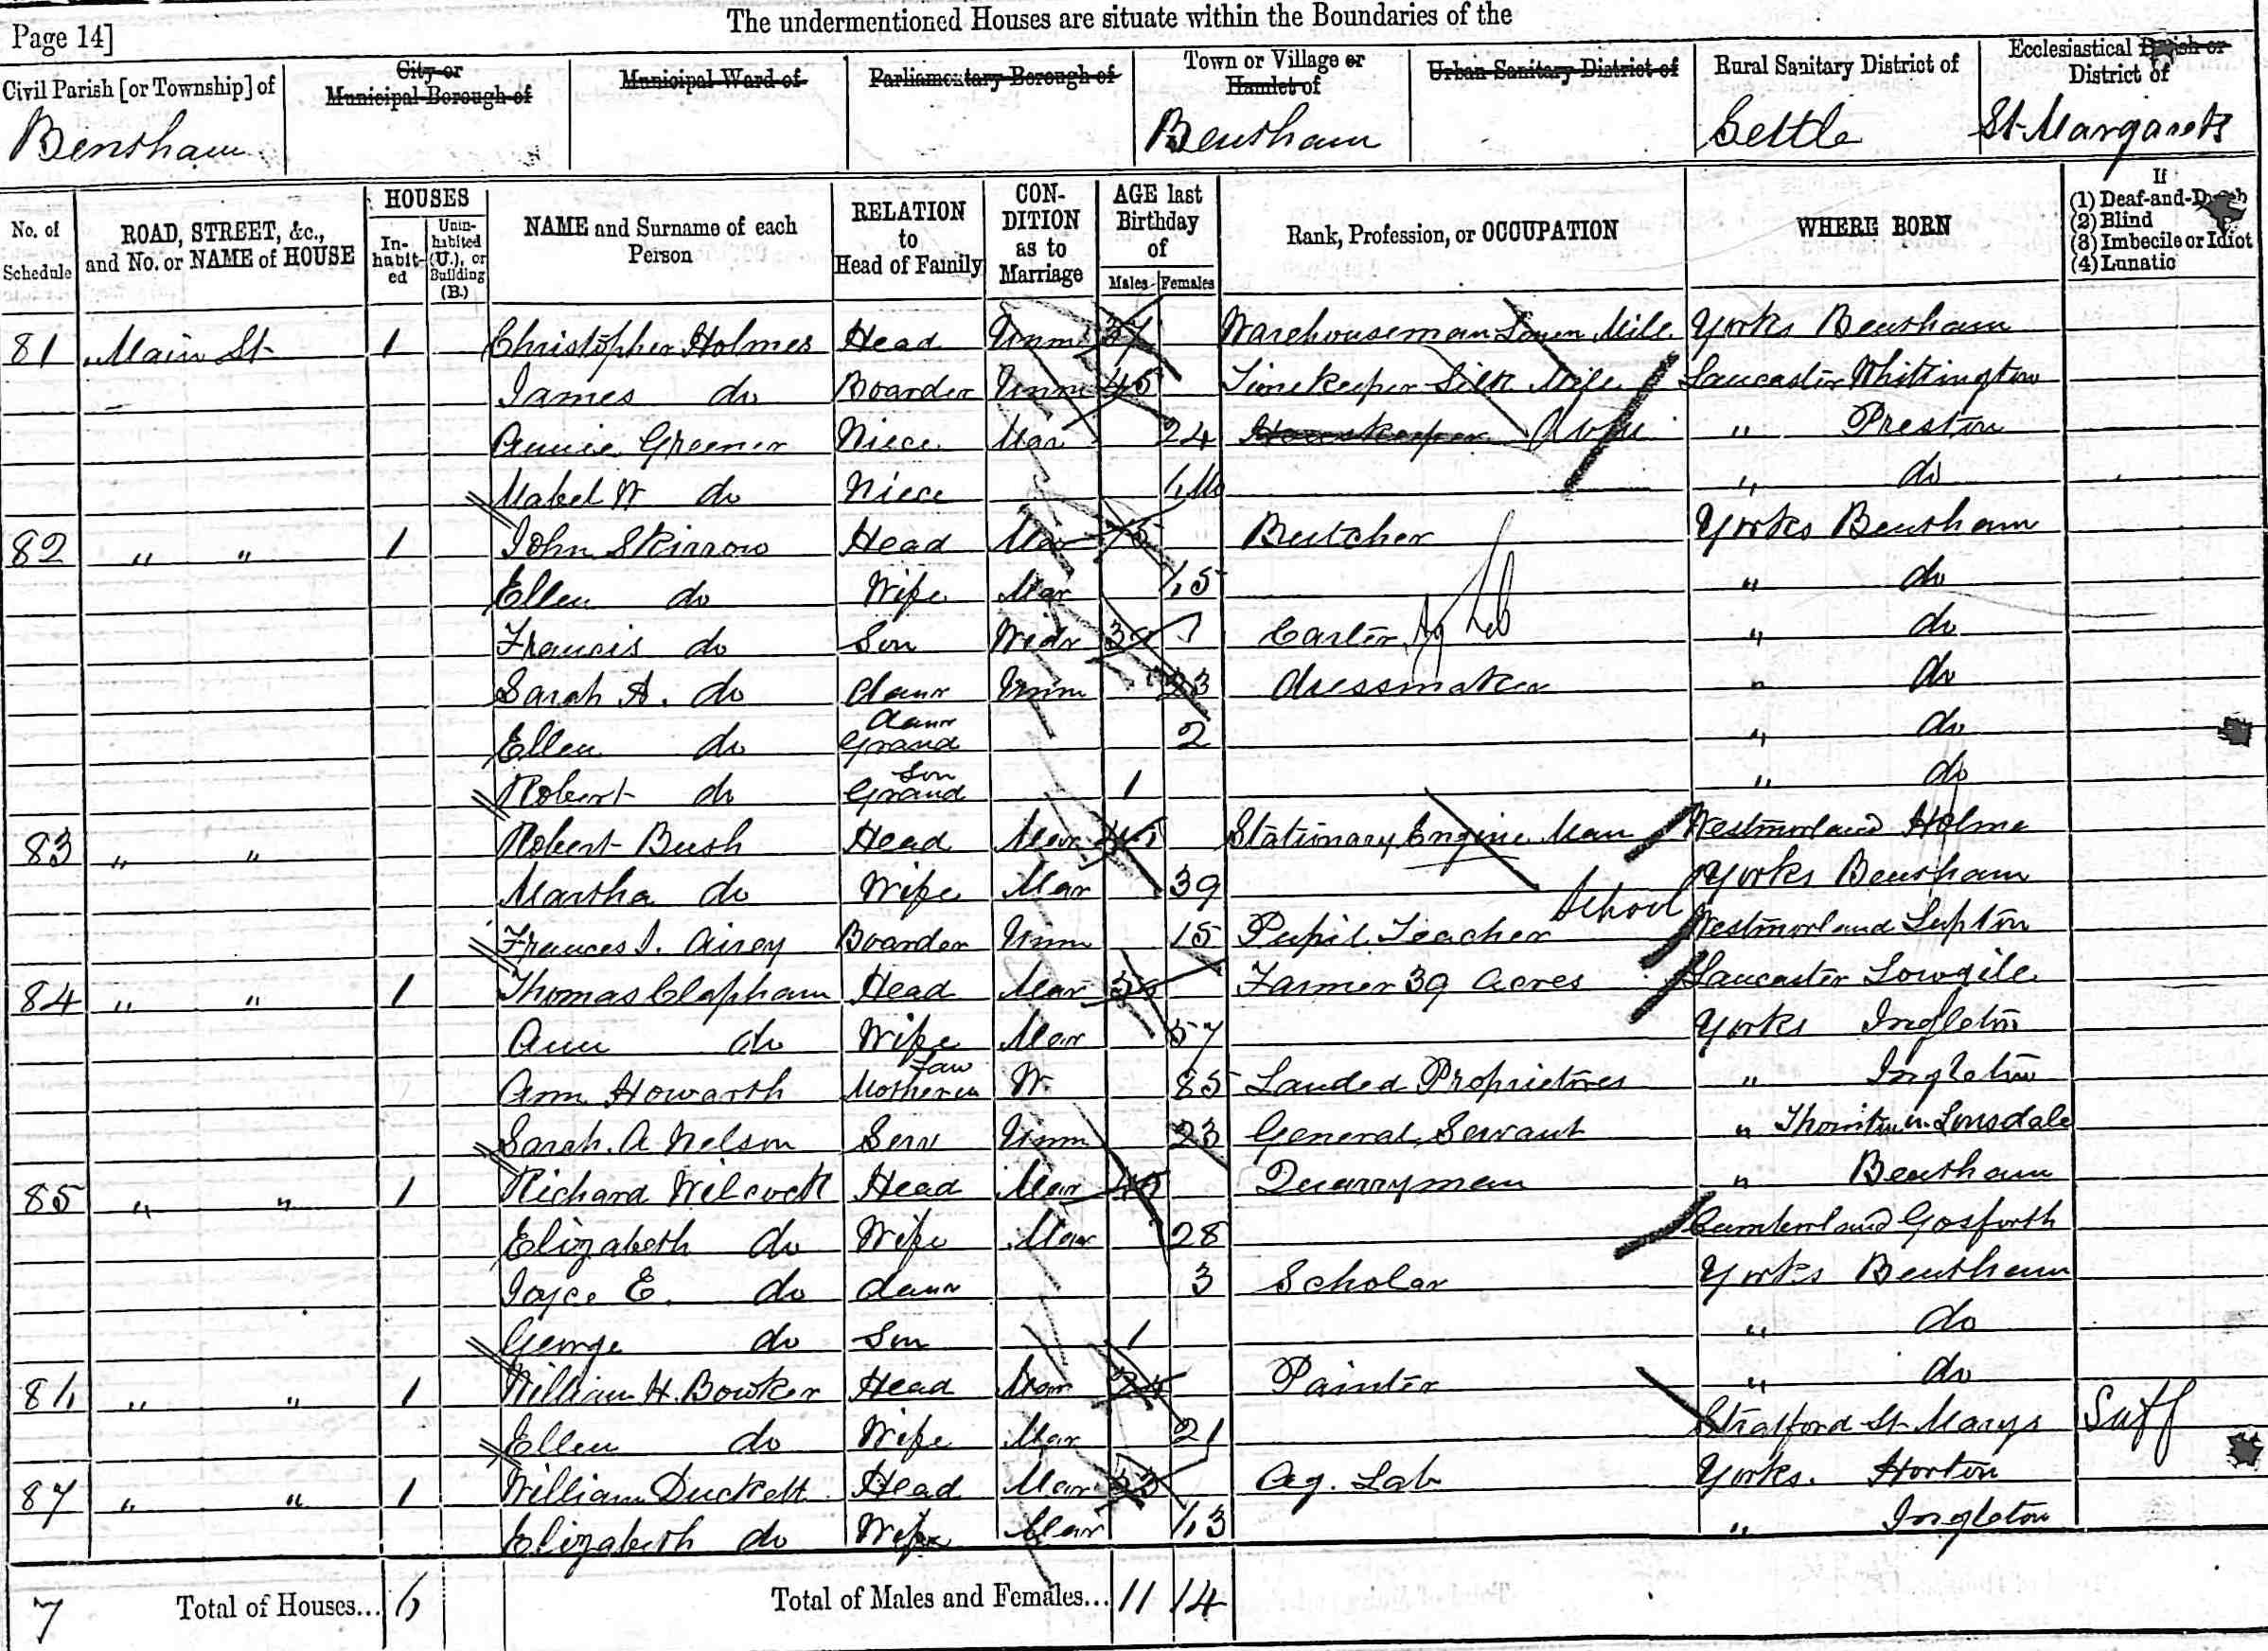 The undermentioned Houses are situate within the Boundaries of the
Page 14]
Civil Parish [or Township] of
City or Municipal Borough of
Municipal Ward of
Parliamentary Borough of
Town or Village or Hamlet of
Urban Sanitary District of
Rural Sanitary District of
Ecclesiastical Parish or District of
Bentham
Bentham
Settle
St Margarets
No. of Schedule
ROAD, STREET, &c., and No. or NAME of HOUSE
HOUSES
In-habit-ed
Unin-habited (U.), or Building (B.)
NAME and Surname of each Person
RELATION to Head of Family
CON-DITION as to Marriage
AGE last Birthday of
Males Females
Rank, Profession, or OCCUPATION
WHERE BORN
If
(1) Deaf-and-Dumb
(2) Blind
(3) Imbecile or Idiot
(4) Lunatic
81 Main St 1 Christopher Holmes Head Unm 37 Warehouseman Mill Yorks Bentham
James do Boarder Unm 45 Timekeeper Silk Mill Lancaster Whittington
Annie Greener Niece Mar 24 Housekeeper " Preston
Mabel W do Niece " do
82 " " 1 John Skirrow Head Mar Butcher Yorks Bentham
Ellen do Wife Mar 65 " do
Francis do Son Widr Carter Ag Lab " do
Sarah A. do daur Unm 23 dressmaker " do
Ellen do Grand daur 2 " do
Robert do Grand Son 1 " do
83 " " Robert Bush Head Mar Stationary Engine Man Westmorland Holme
Martha do Wife Mar 39 Yorks Bentham
Frances I. Airey Boarder Unm 15 Pupil Teacher School Westmorland Lupton
84 " " 1 Thomas Clapham Head Mar Farmer 39 Acres Lancaster Lowgill
Ann do Wife Mar 57 Yorks Ingleton
Ann Howarth Mother in Law W. 85 Landed Proprietress " Ingleton
Sarah. A Nelson Serv Unm 23 General Servant " Thornton in Lonsdale
85 " " 1 Richard Wilcock Head Mar Quarryman " Bentham
Elizabeth do Wife Mar 28 Cumberland Gosforth
Joyce E. do daur 3 Scholar Yorks Bentham
George do Son 1 " do
86 " " 1 William H. Bowker Head Mar 24 Painter " do
Ellen do Wife Mar 21 Stratford St Marys Suff
87 " " 1 William Duckett Head Mar Ag. Lab Yorks. Horton
Elizabeth do Wife Mar 63 " Ingleton
7 Total of Houses... 6 Total of Males and Females... 11 14